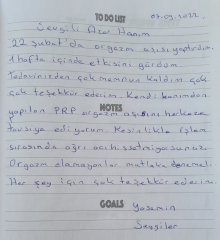 TO DO LIST
07.03.2022
Sevgili Azer Hanım
22 Şubat'da orgazm aşısı yaptırdım.
1 hafta içinde etkisini gördüm.
Tedavinizden çok memnun kaldım çok
çok teşekkür ederim. Kendi kanımdan
NOTES
yapılan PRP orgazm aşısını herkese
tavsiye ediyorum. Kesinlikle işlem
sırasında ağrı acı hissetmiyorsunuz.
Orgazm olamayanlar mutlaka denemeli.
Her şey için çok teşekkür ederim
GOALS
Yasemin
Sevgiler